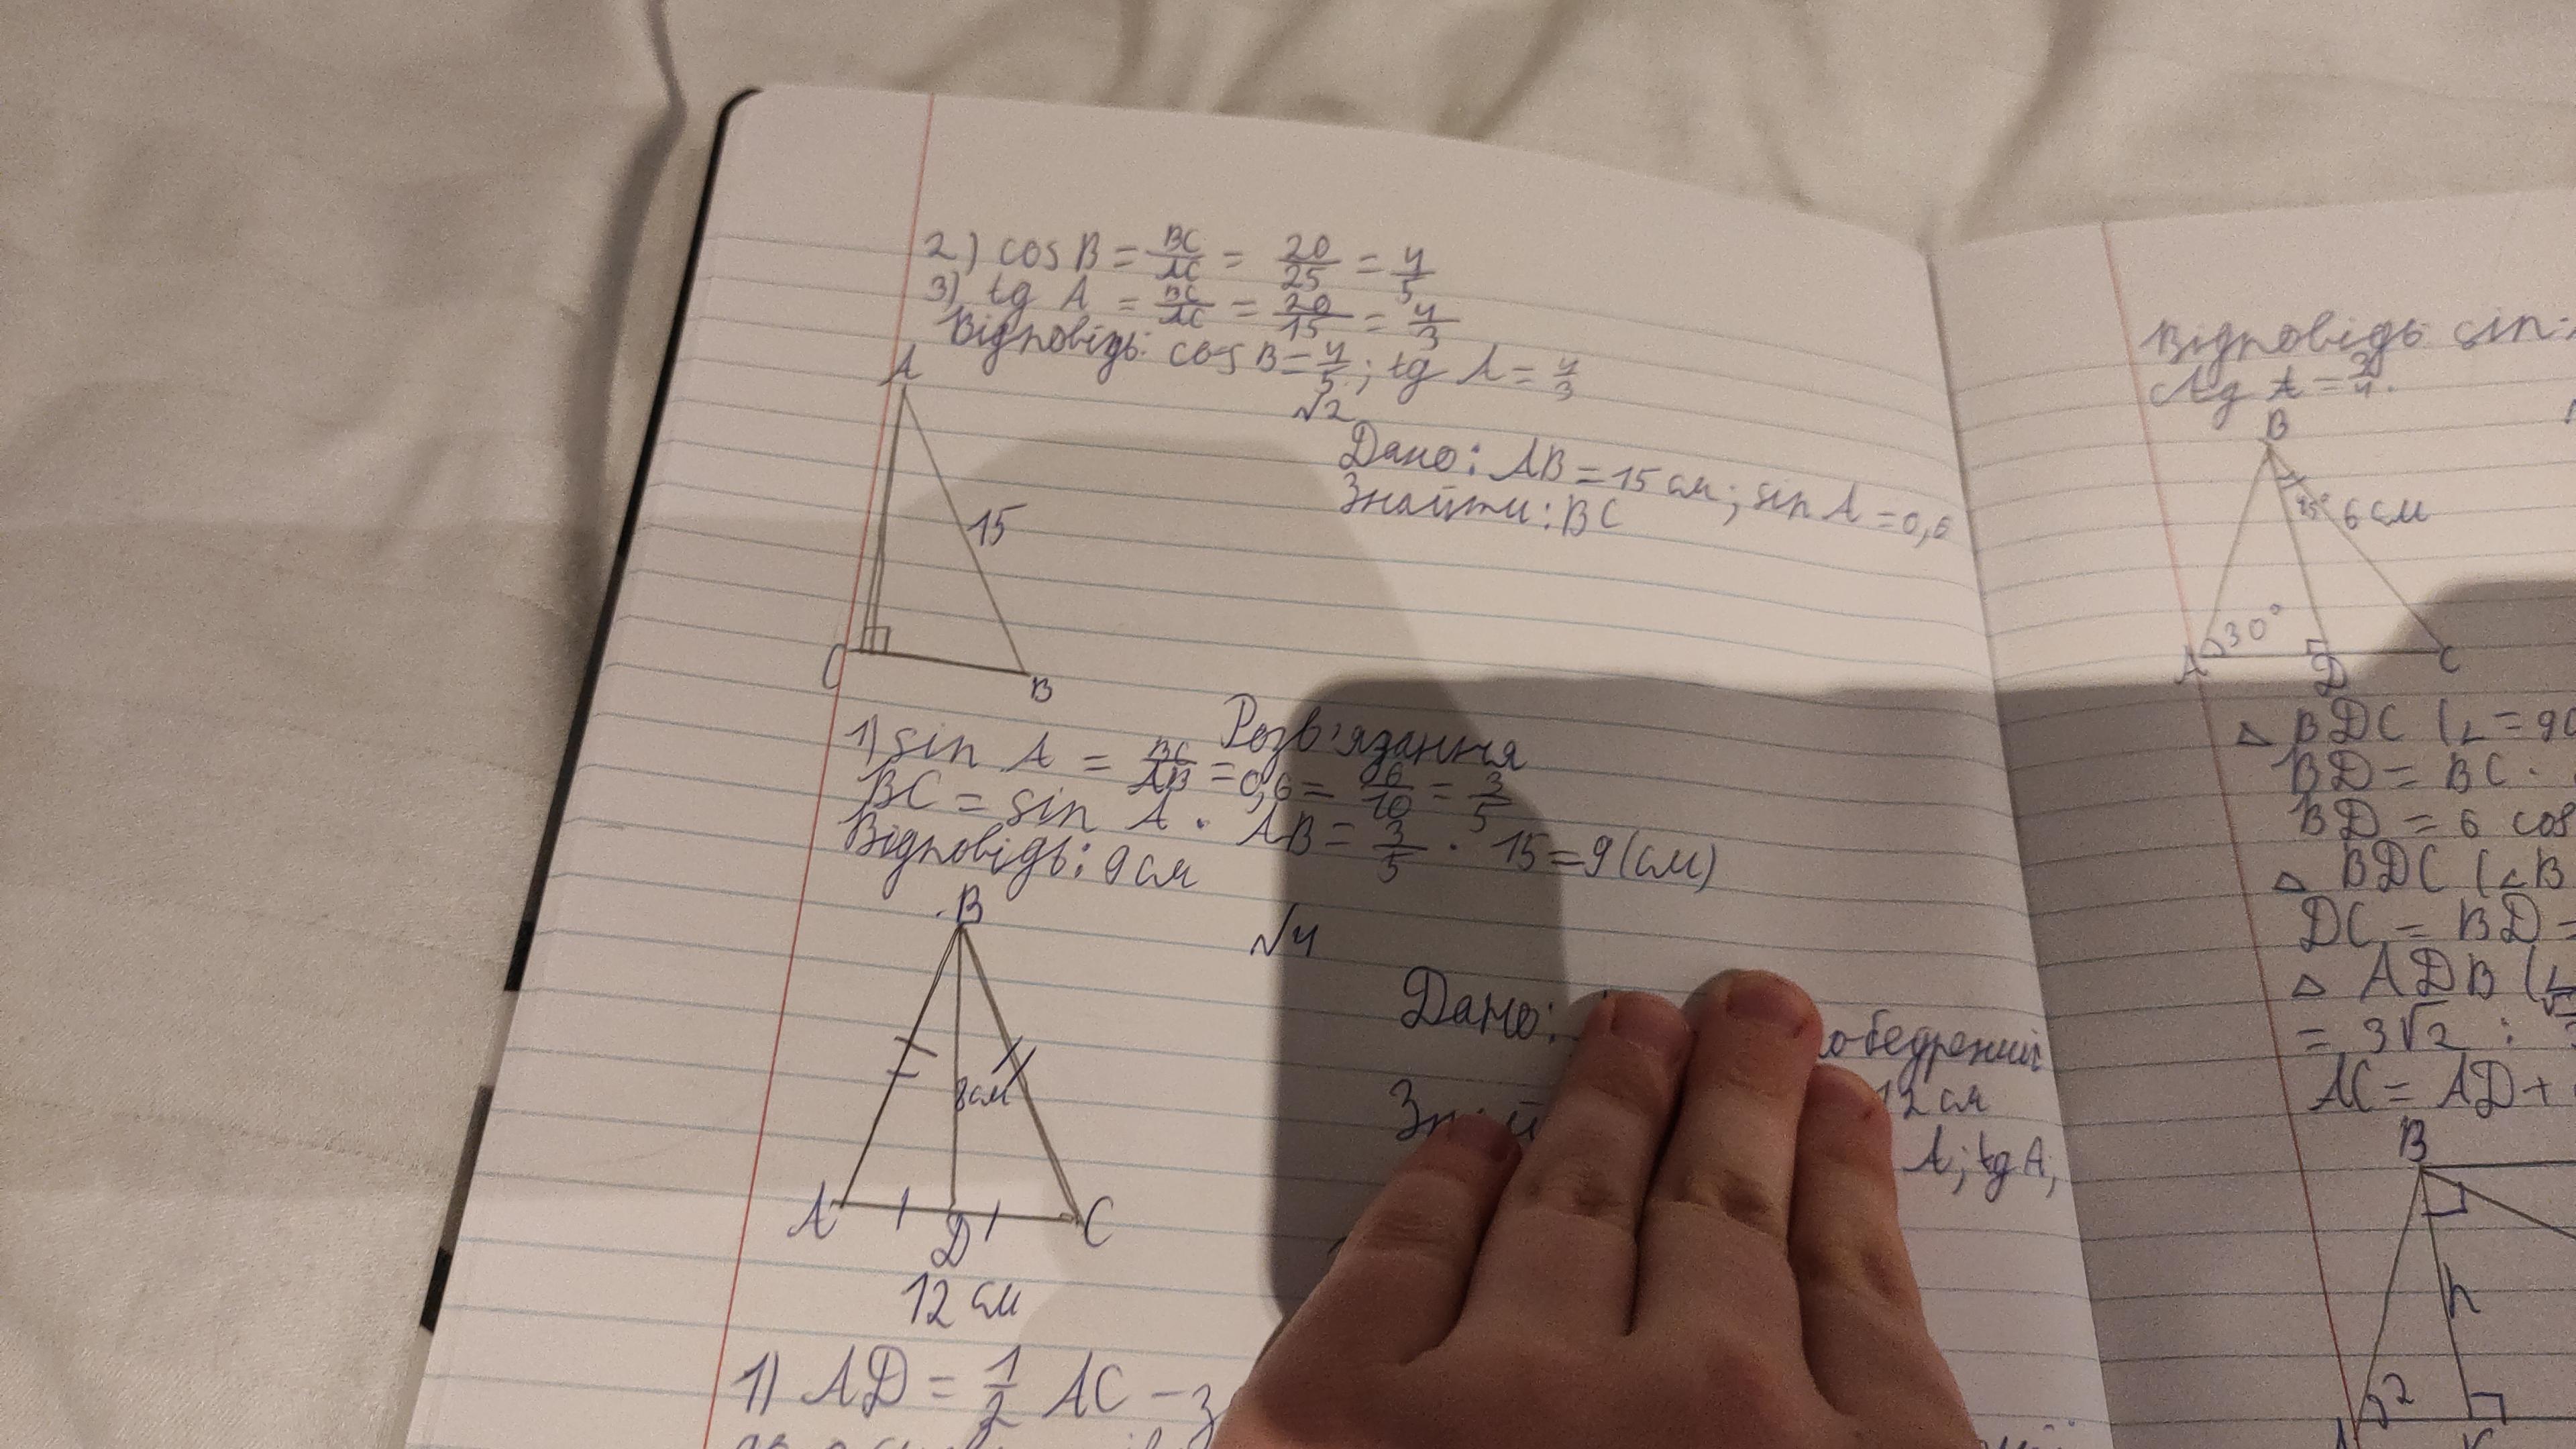 2) cos B = BC/AC = 20/25 = 4/5
3) tg A = BC/AC = 20/15 = 4/3
Відповідь: cos B = 4/5; tg A = 4/3
√2
A
15
C
B
Дано: AB = 15 см; sin A = 0,6
Знайти: BC
Розв'язання
1) sin A = BC/AB = 0,6 = 6/10 = 3/5
BC = sin A · AB = 3/5 · 15 = 9 (см)
Відповідь: 9 см
√4
B
8 см
A
D
C
12 см
Дано:
обедрений
12 см
A; tg A;
1) AD = 1/2 AC – з
Відповідь: sin
tg A = 3/4.
B
45°
6 см
30°
A
D
C
△ BDC (∠ = 90
BD = BC ·
BD = 6 cos
△ BDC (∠B
DC = BD =
△ ADB (∠
= 3√2 :
AC = AD +
B
h
2